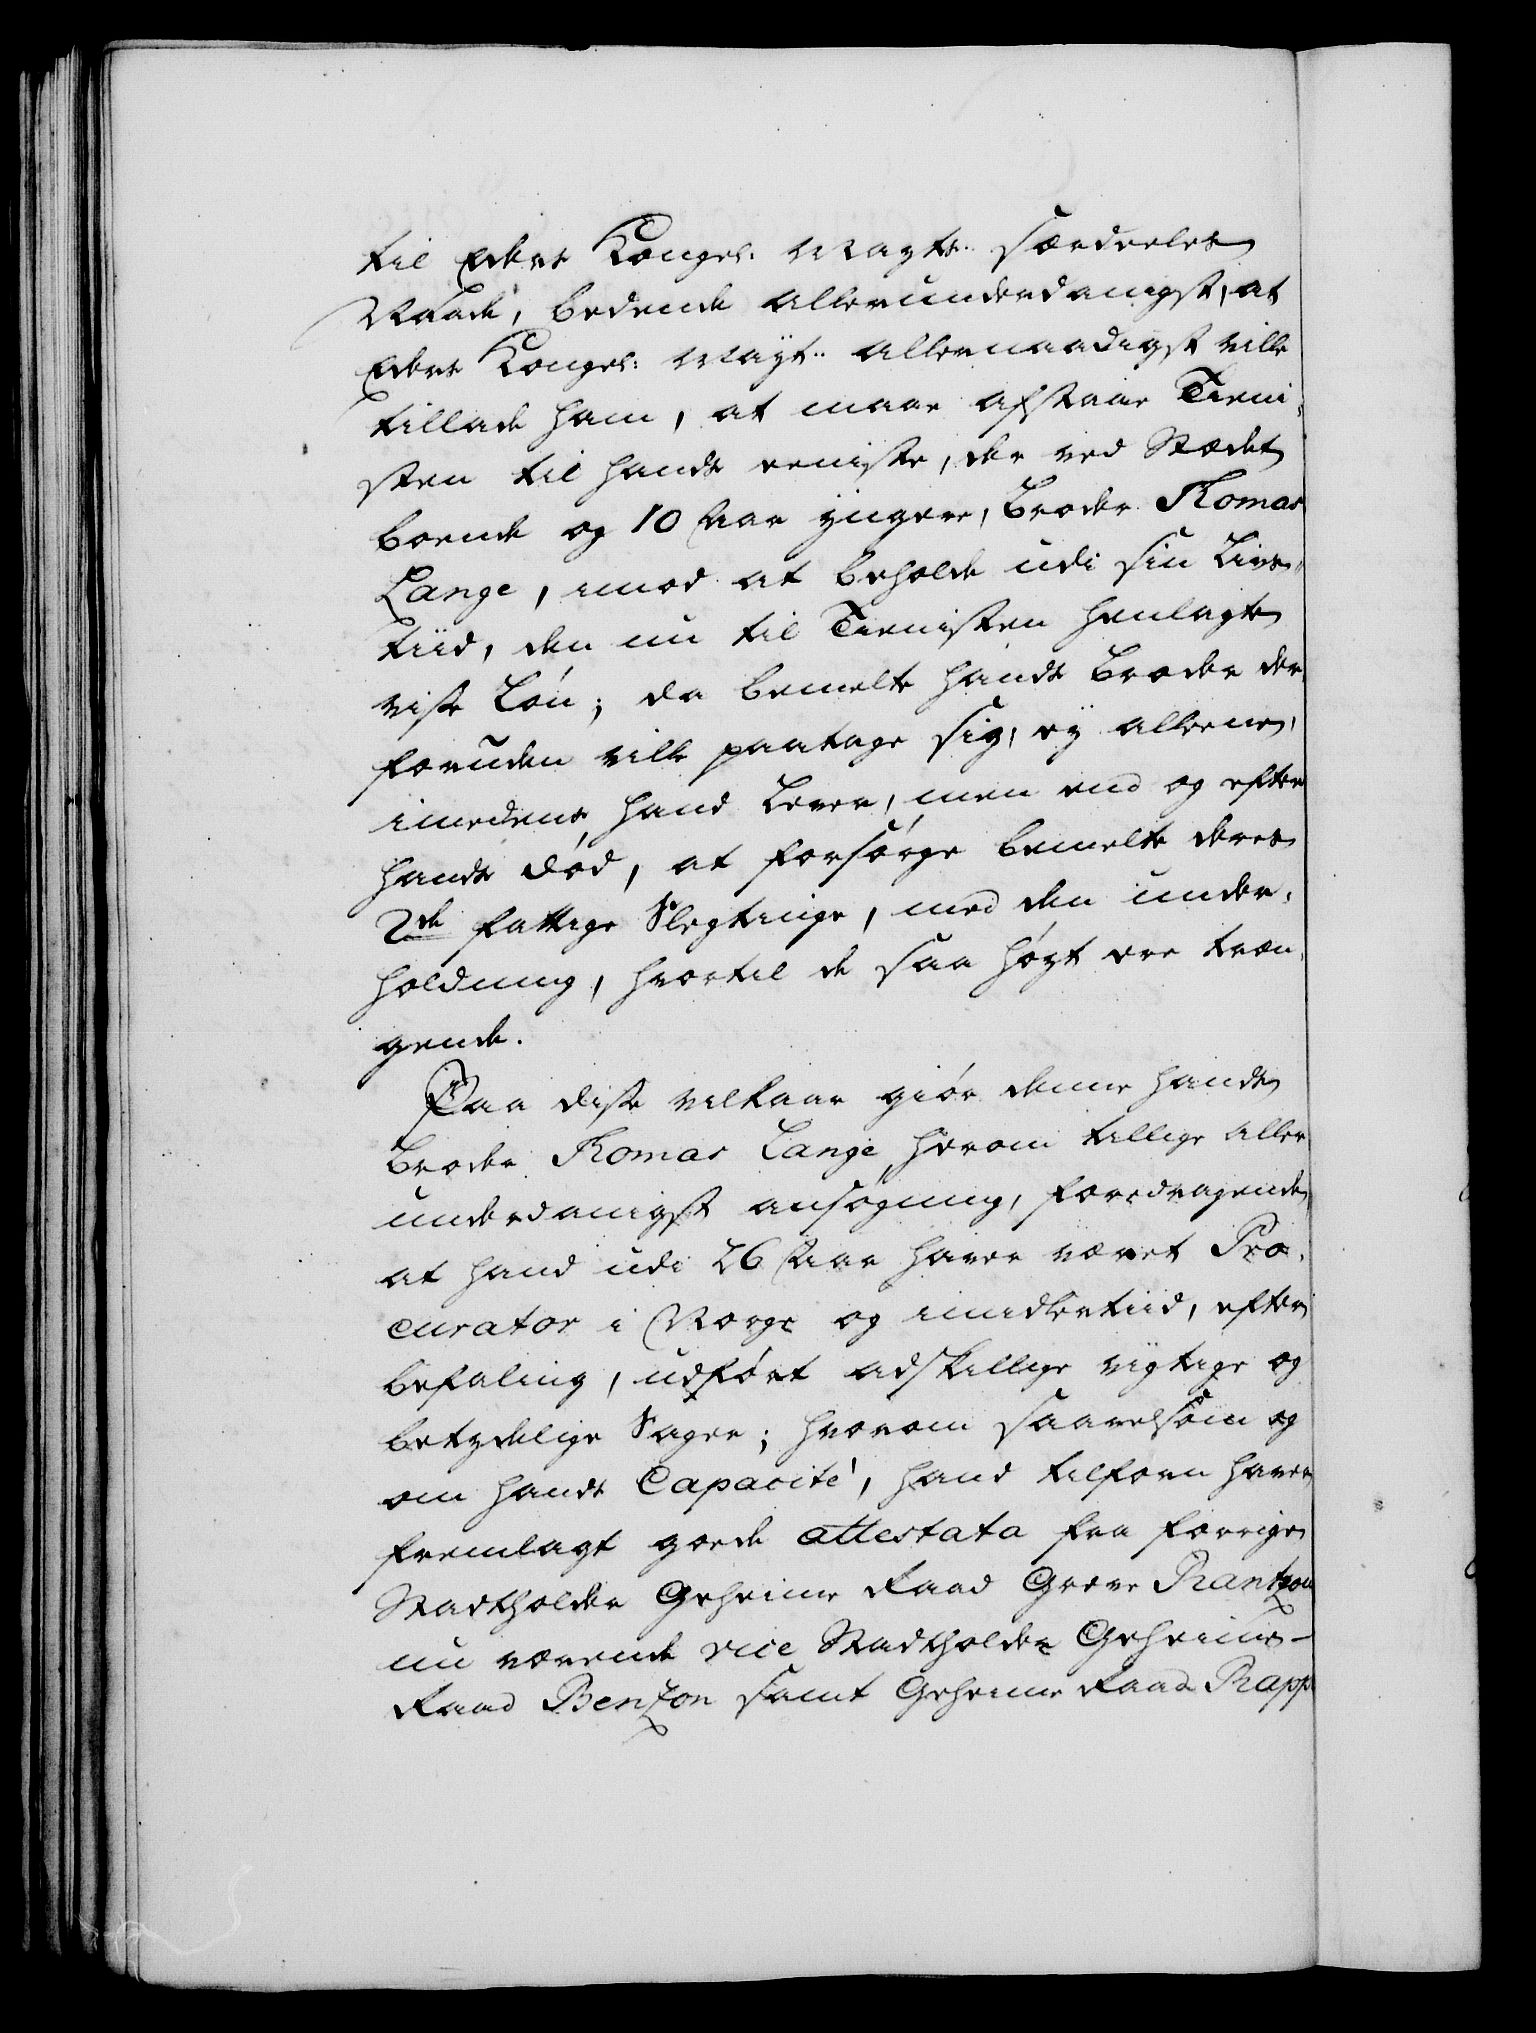 til Eders Kongel: Mayts. særdeeles
Naade, bedende allerunderdanigst, at
Eders Kongel: Mayt.. allernaadigst ville
tillade ham, at maae afstaae Tieni-
sten til hands eeniste, der ved Stædet
boende og 10 Aar yngere, Broder Thomas
Lange, imod at beholde udi sin Livs-
tiid, den nu til Tienisten henlagte
visse Løn; da bemelte hands Broder der
foruden ville paatage sig, ey alleene,
imedens hand Lever, men end og efter
hands død, at forsørge bemelte deres
2de fattige Slegtinge, med den under-
holdning, hvortil de saa høyt ere træn-
gende.
Paa disse vilkaar giør denne hands
Broder Thomas Lange herom tillige aller
underdanigst ansøgning, foredragende,
at hand udi 26 Aar haver været Pro-
curator i Norge og imidlertiid, efter
befaling, udført adskillige vigtige og
betydelige Sager; hvorom saavelsom og
om hands Capacité, hand tilforn haver
fremlagt goede attestata fra forrige
Stadtholder Geheime Raad Greve Rantzou
nu værende vice Stadtholder Geheime-
Raad Benzon samt Geheime Raad Rappe